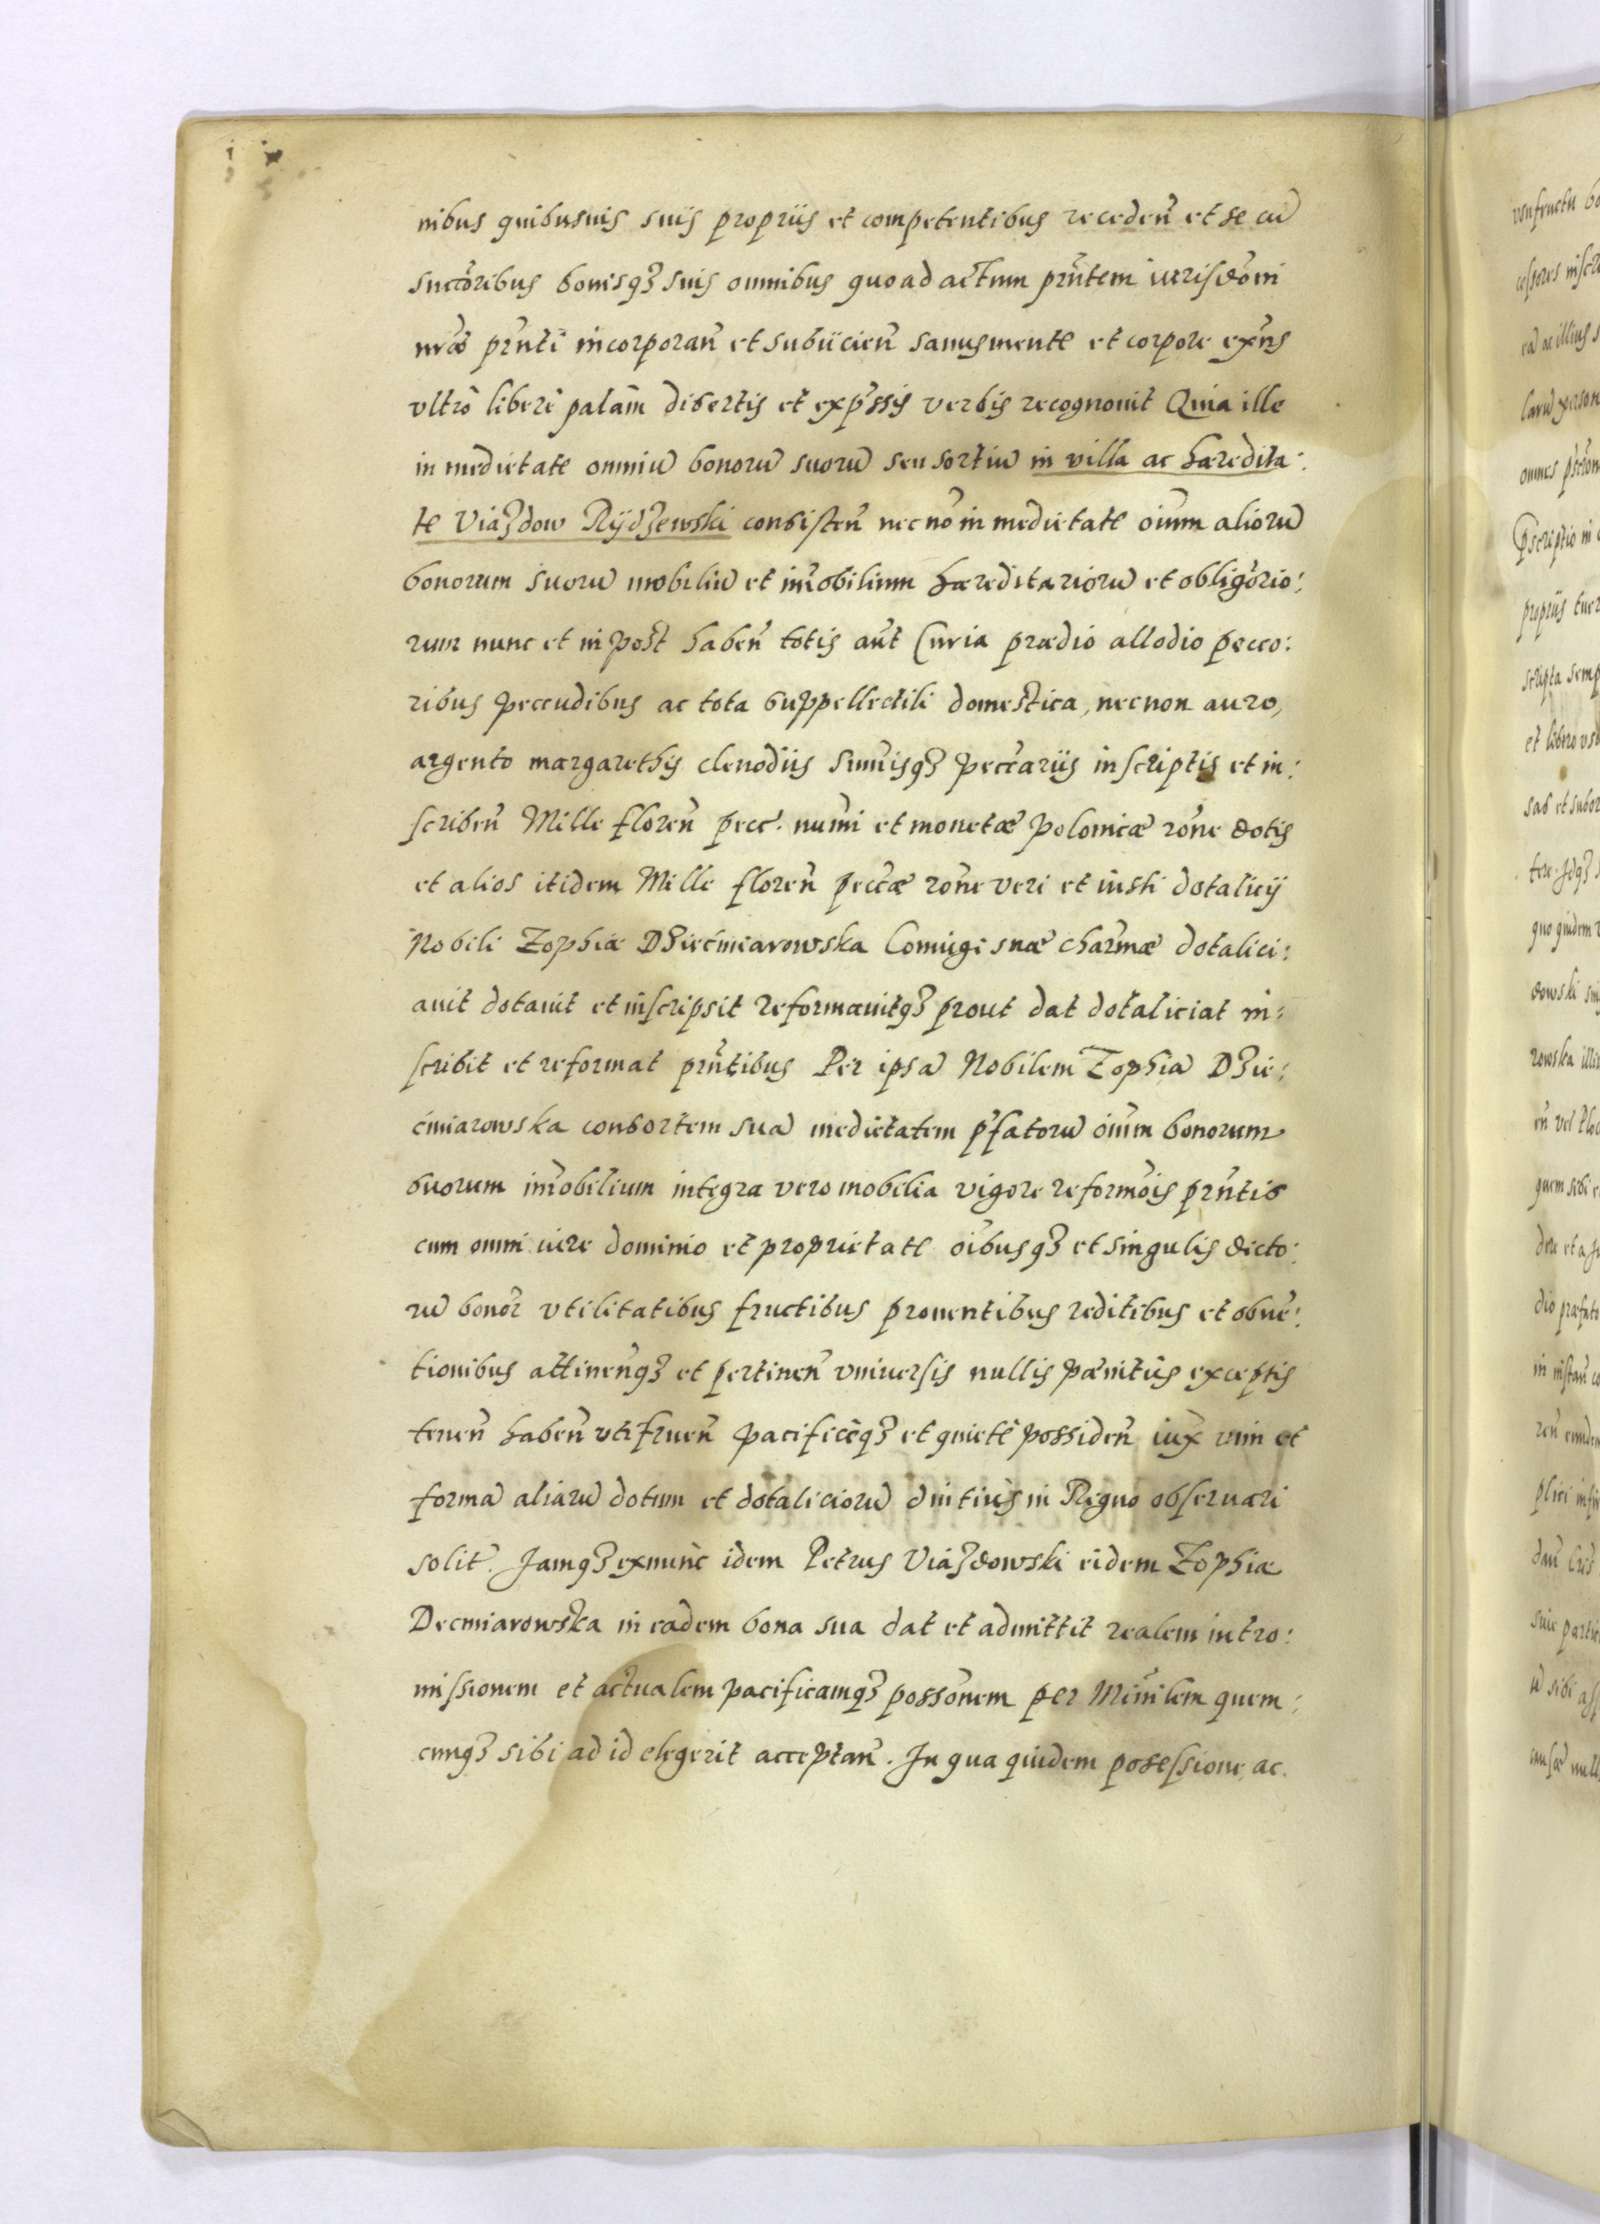 nibus quibusuis suis proprijs et competentibus receden̄ et se cū
succōribus bonisqȝ suis omnibus quoad actum pnt̄em iurisdōni
nrae pnti incorporan̄ et subiicien̄ sanus mente et corpore exn̄s
vltrò liberè palàm disertis et exp̄ssis verbis recognouit Quia ille
in medietate omniū bonorū suorū seu sortiū in villa ac hæredita:
te Viaȝdow Rÿdȝewski consisten̄ nec nō in medietate oīum aliorū
bonorum suorū mobiliū et im̄obilium hæreditariorū et obligōrio:
rum nunc et in post haben̄ totis aūt Curia prædio allodio pecco:
ribus peccudibus ac tota suppellectili domestica, necnon auro,
argento margarethis clenodiis sum̄isqȝ pecc̄ariis inscriptis et in:
scriben̄ Mille floren̄ pecc. num̄i et monetæ polonicæ rōne dotis
et alios itidem Mille floren̄ pecc̄æ rōne veri et iusti dotalicij
Nobili Zophiæ Dȝiećmiarowska Coniugi suæ charm̄æ dotalici:
auit dotauit et inscripsit reformauitqȝ prout dat dotaliciat in:
scribit et reformat prn̄tibus Per ipsā Nobilem Zophiā Dȝie:
ćmiarowska consortem suā medietatem p̄fatorū oīum bonorum
suorum im̄obilium integra vero mobilia vigore reformōis prn̄tis
cum omni iure dominio et proprietate oībusqȝ et singulis dicto:
rū bonor̄ vtilitatibus fructibus prouentibus reditibus et obue:
tionibus attinen̄qȝ et pertinen̄ vniuersis nullis pænitùs exceptis
tenen̄ haben̄ vtifruen̄ pacificèqȝ et quietè possiden̄ iux̄ vim et
formā aliarū dotum et dotaliciorū diutius in Regno obseruari
solit̄. Jamqȝ exnunc idem Petrus Viaȝdowski eidem Zophiæ
Decmiarowska in eadem bona sua dat et admittit realem intro:
missionem et actualem pacificamqȝ possōnem per Minīlem quem:
cunqȝ sibi ad id elegerit acceptan̄. In qua quidem posessione ac